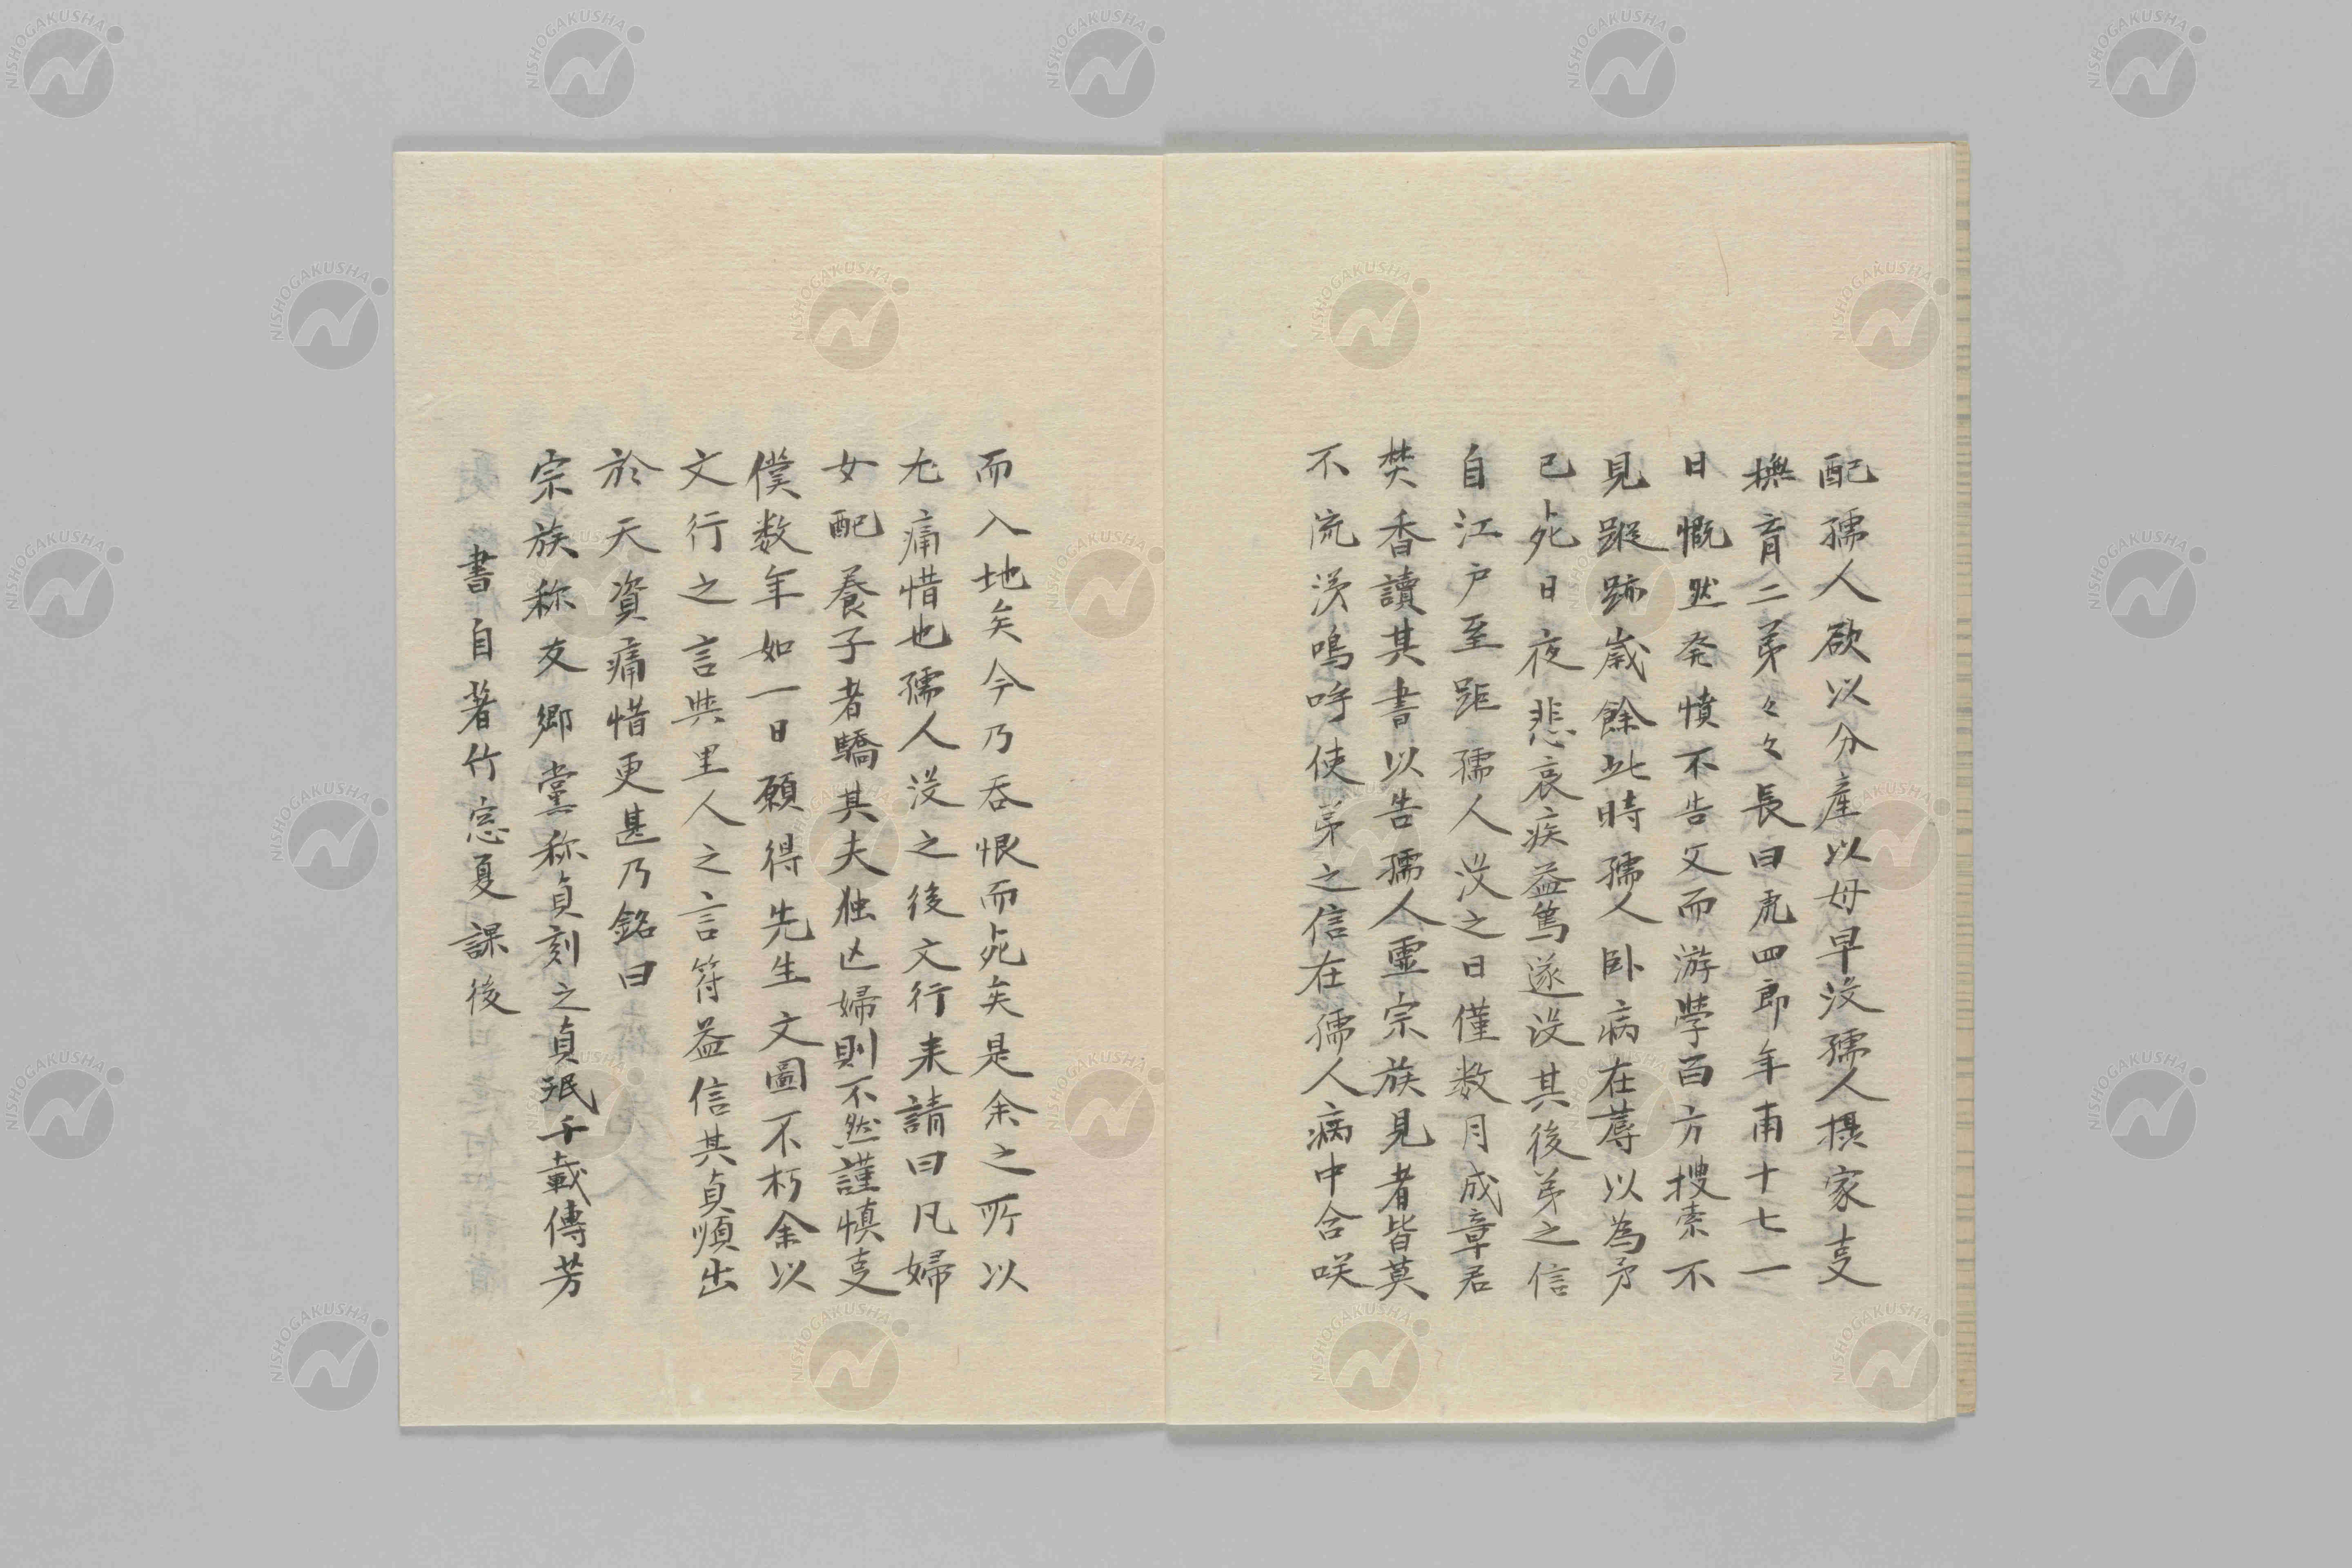 配孺人欲以分產以母早没孺人摂家支
撫育二弟々々長曰虎四郎年甫十七一
日慨然発憤不告父而游學百方搜索不
見蹤跡歲餘此時孺人卧病在蓐以為弟
已死日夜悲哀疾益篤遂没其後弟之信
自江戸至距孺人没之日僅数月成章君
焚香讀其書以告孺人霊宗族見者皆莫
不流涕嗚呼使弟之信在孺人病中含咲
而入地矣今乃吞恨而死矣是余之所以
尤痛惜也孺人没之後文行来請曰凡婦
女配養子者驕其夫独亡婦則不然謹慎事
僕数年如一日願得先生文圖不朽余以
文行之言與里人之言符益信其貞順出
於天資痛惜更甚乃銘曰
宗族称友鄉黨称貞刻之貞珉千載傳芳
書自著竹窓夏課後
NISHOGAKUSHA